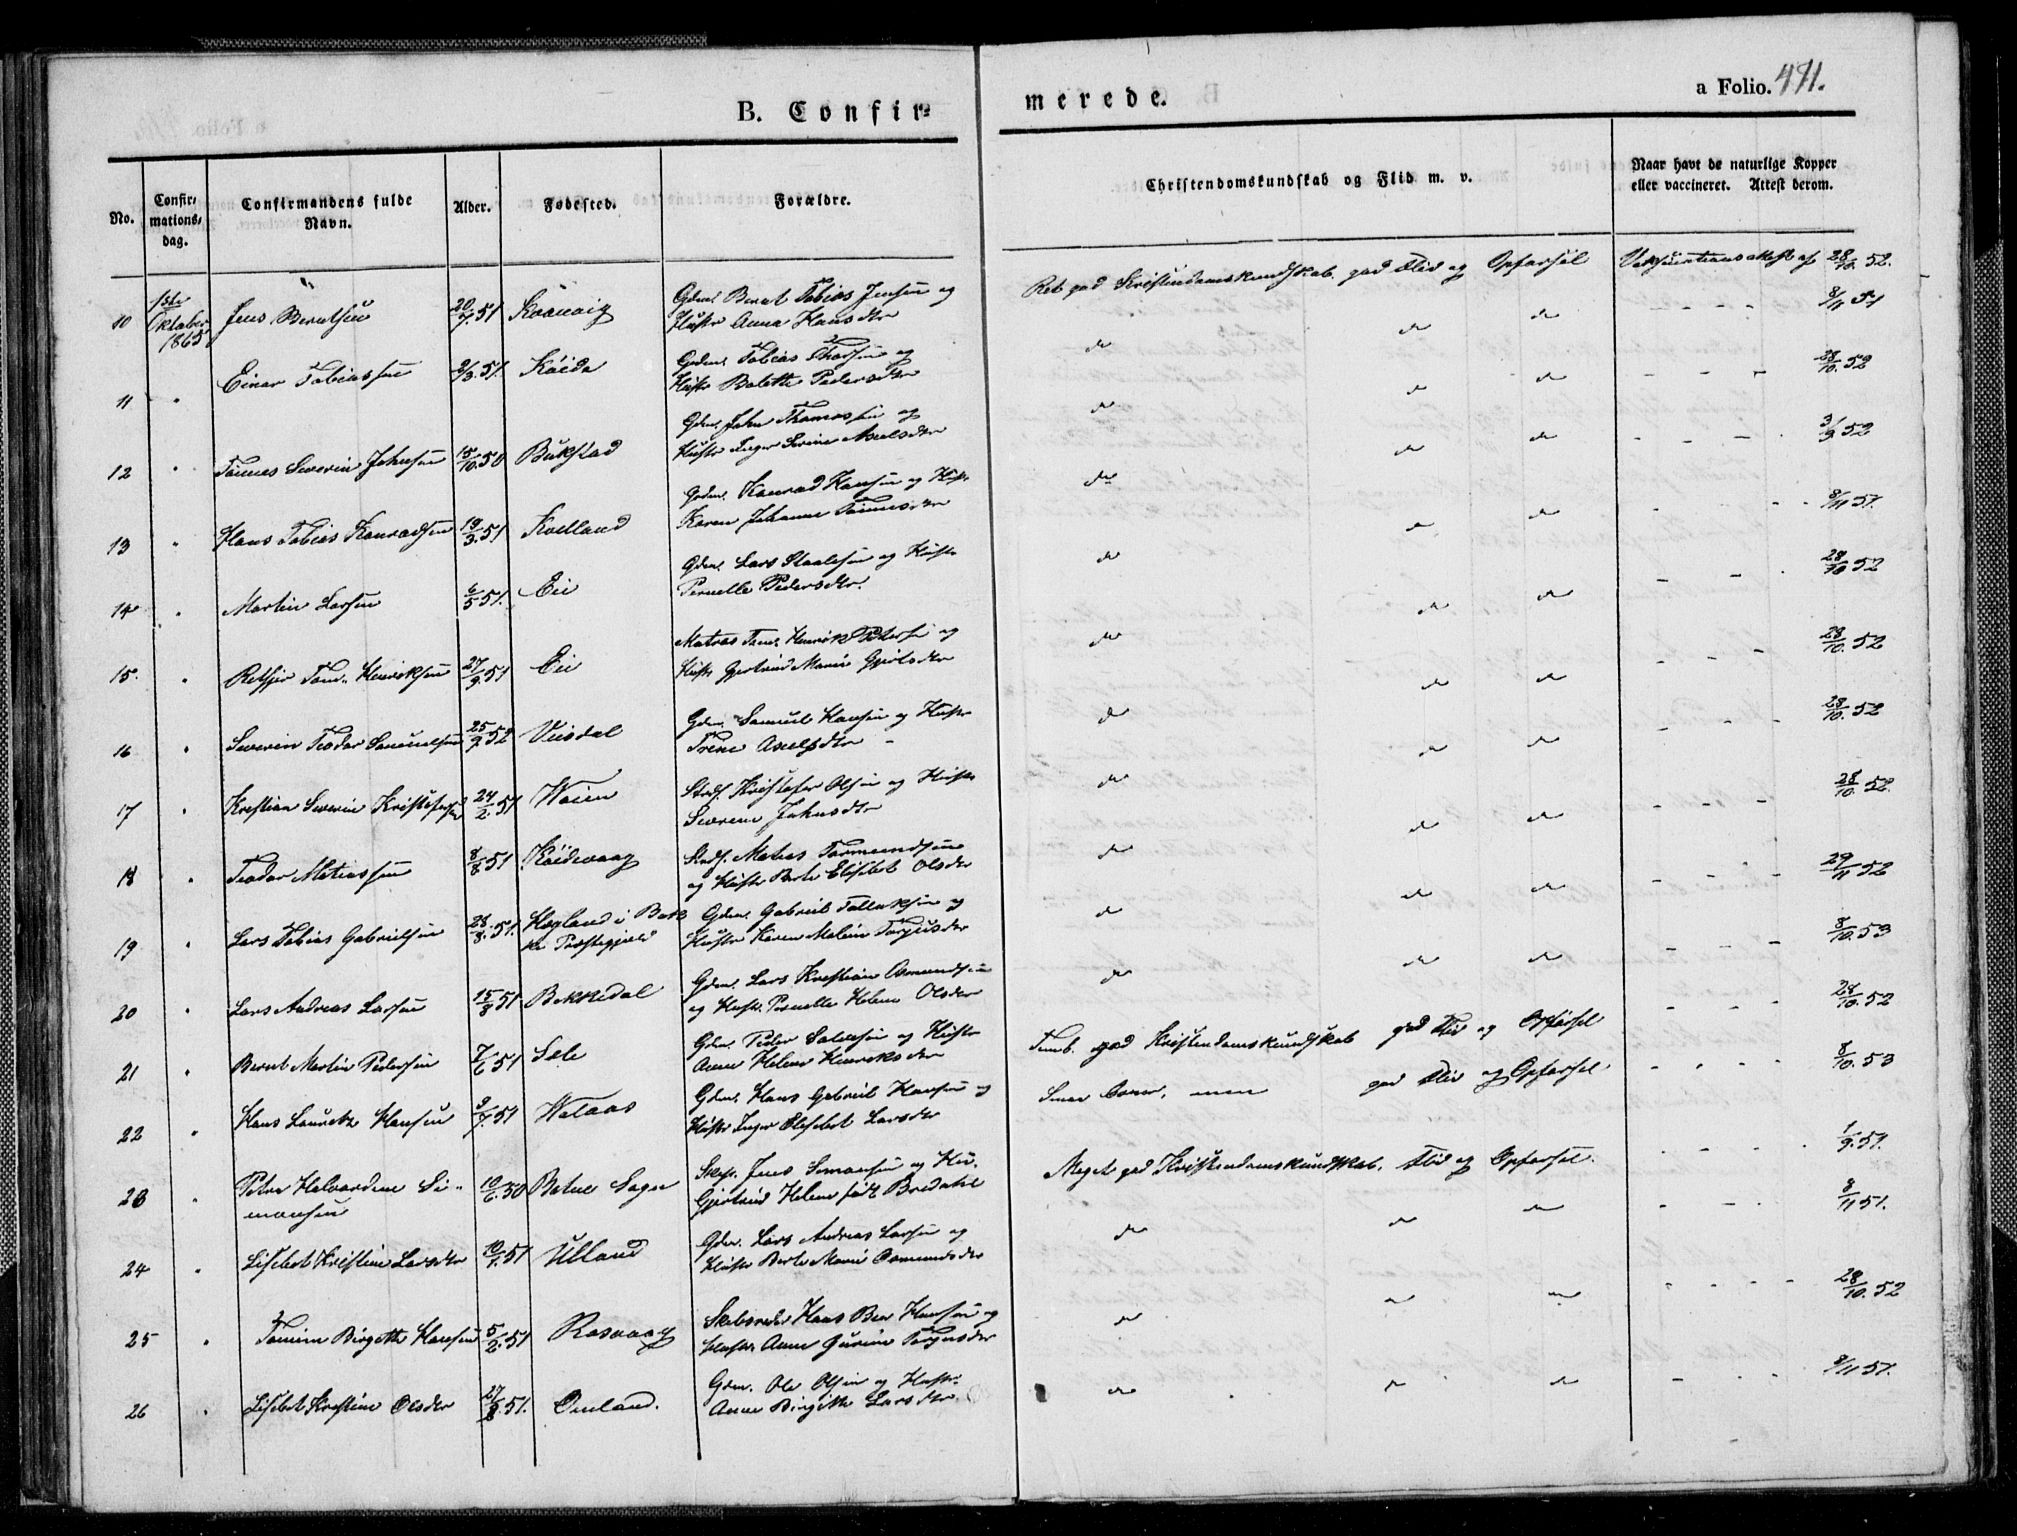 B. Confir=
merede.
a Folio. 471.
No.
Confir=
mations=
dag.
Confirmandens fulde
Navn.
Alder.
Fødested.
Forældre.
Christendomskundskab og Flid m. v.
Naar havt de naturlige Kopper
eller vaccineret. Attest derom.
10 1ste Oktober 1865 Jens Berntsen 20/7.51
Gdm. Bernt Tobias Jensen og
Hustr Anna Hansdtr
Ret god Kristendomskundskab. god Flid og Opførsel
28/10.52.
11 " Einar Tobiassen 2/3.51. Køide
Gdm. Tobias
Hustr Bolette Pedersdtr
do do do - - - 8/11 51
12 " Tønnes Severin Johnsen 15/10.50 Bukstad
Gdm. John Thomassen og
Hustr Inger Serine Axelsdtr
do do do - - - 28/10.52
13 " Hans Tobias Konradsen 19/3.51 Kvelland
Gdm. Konrad Hansen og Hustr
Karen Johanne Tønnesdtr
do do do - - - 3/9 52
14 " Martin Larsen 6/5 51. Eie
Gdm. Lars Staalesen og Hustr
Pernelle Pedersdtr.
do do do - - - 8/11 51.
15. " Henriksen 27/9 51 Eie
Matros Henrik Petersen og
Hustr Gjertrud Marie
do do do - - - 28/10 52
16 " Severin Teodor Samuelsen 25/9 52
Gdm. Samuel Hansen og Hustr
Trene Axelsdtr
do do do - - - 28/10.52
17 " Kristian Severin Kristofersen 24/2.51
Kristofer Olsen og Hustr
Severine Johnsdtr
do do do - - - 28/10.52
18 " Teodor Matiassen 8/8 51 Køidevaag
Matias Tormundsen
og Hustr Berte Elisebet Olsdtr
do do do - - - 28/10.52.
19 " Lars Tobias Gabrielsen 28/8.51. Hægland i Bak
ke Præstegjeld
Gdm. Gabriel Tallaksen og
Hustr Karen Malene Torjusdtr
do do do - - - 29/11 52
20 " Lars Andreas Larsen 15/8 51 Bekkedal
Gdm. Lars Kristian Osmundsen
og Hustr. Pernelle Helene Olsdtr
do do do - - - 8/10.53
21 " Bernt Martin Pedersen 7/6 51 Sele
Gdm. Peder Salvesen og Hustr
Anne Helene Henriksdtr
god Kristendomskundskab god Flid og Opførsel
- - - 28/10.52
22 " Hans Lauritz Hansen 9/7.51 Wataas
Gdm. Hans Gabriel Hansen og
Hustr Inger Elisebet Larsdtr
men god Flid og Opførsel
- - - 8/10.53
23 Petra Halvardine Si=
monsen 10/6.50 Betne Sogn
Jens Simonsen og Hu.
Gjertrud Helene født Bredahl
Meget god Kristendomskundskab. Flid og Opførsel.
- - - 1/9.51.
24 " Lisebet Kristine Larsdtr 10/7.51 Ulland
Gdm. Lars Andreas Larsen og
Hustr Berte Marie Osmundsdtr
do do do - - - 8/11 51.
25 " Birgitte Hansen 5/2.51 Rosvaag
Skibsreder Hans Hansen og
Hustr Anne Gurine Torjusdtr
do do do - - - 28/10.52
26 " Lisebet Kristine Olsdtr 27/8.51. Omland.
Gdm. Ole Olsen og Hustr.
Anne Birgitte Larsdtr.
do do do - - - 8/11 51.